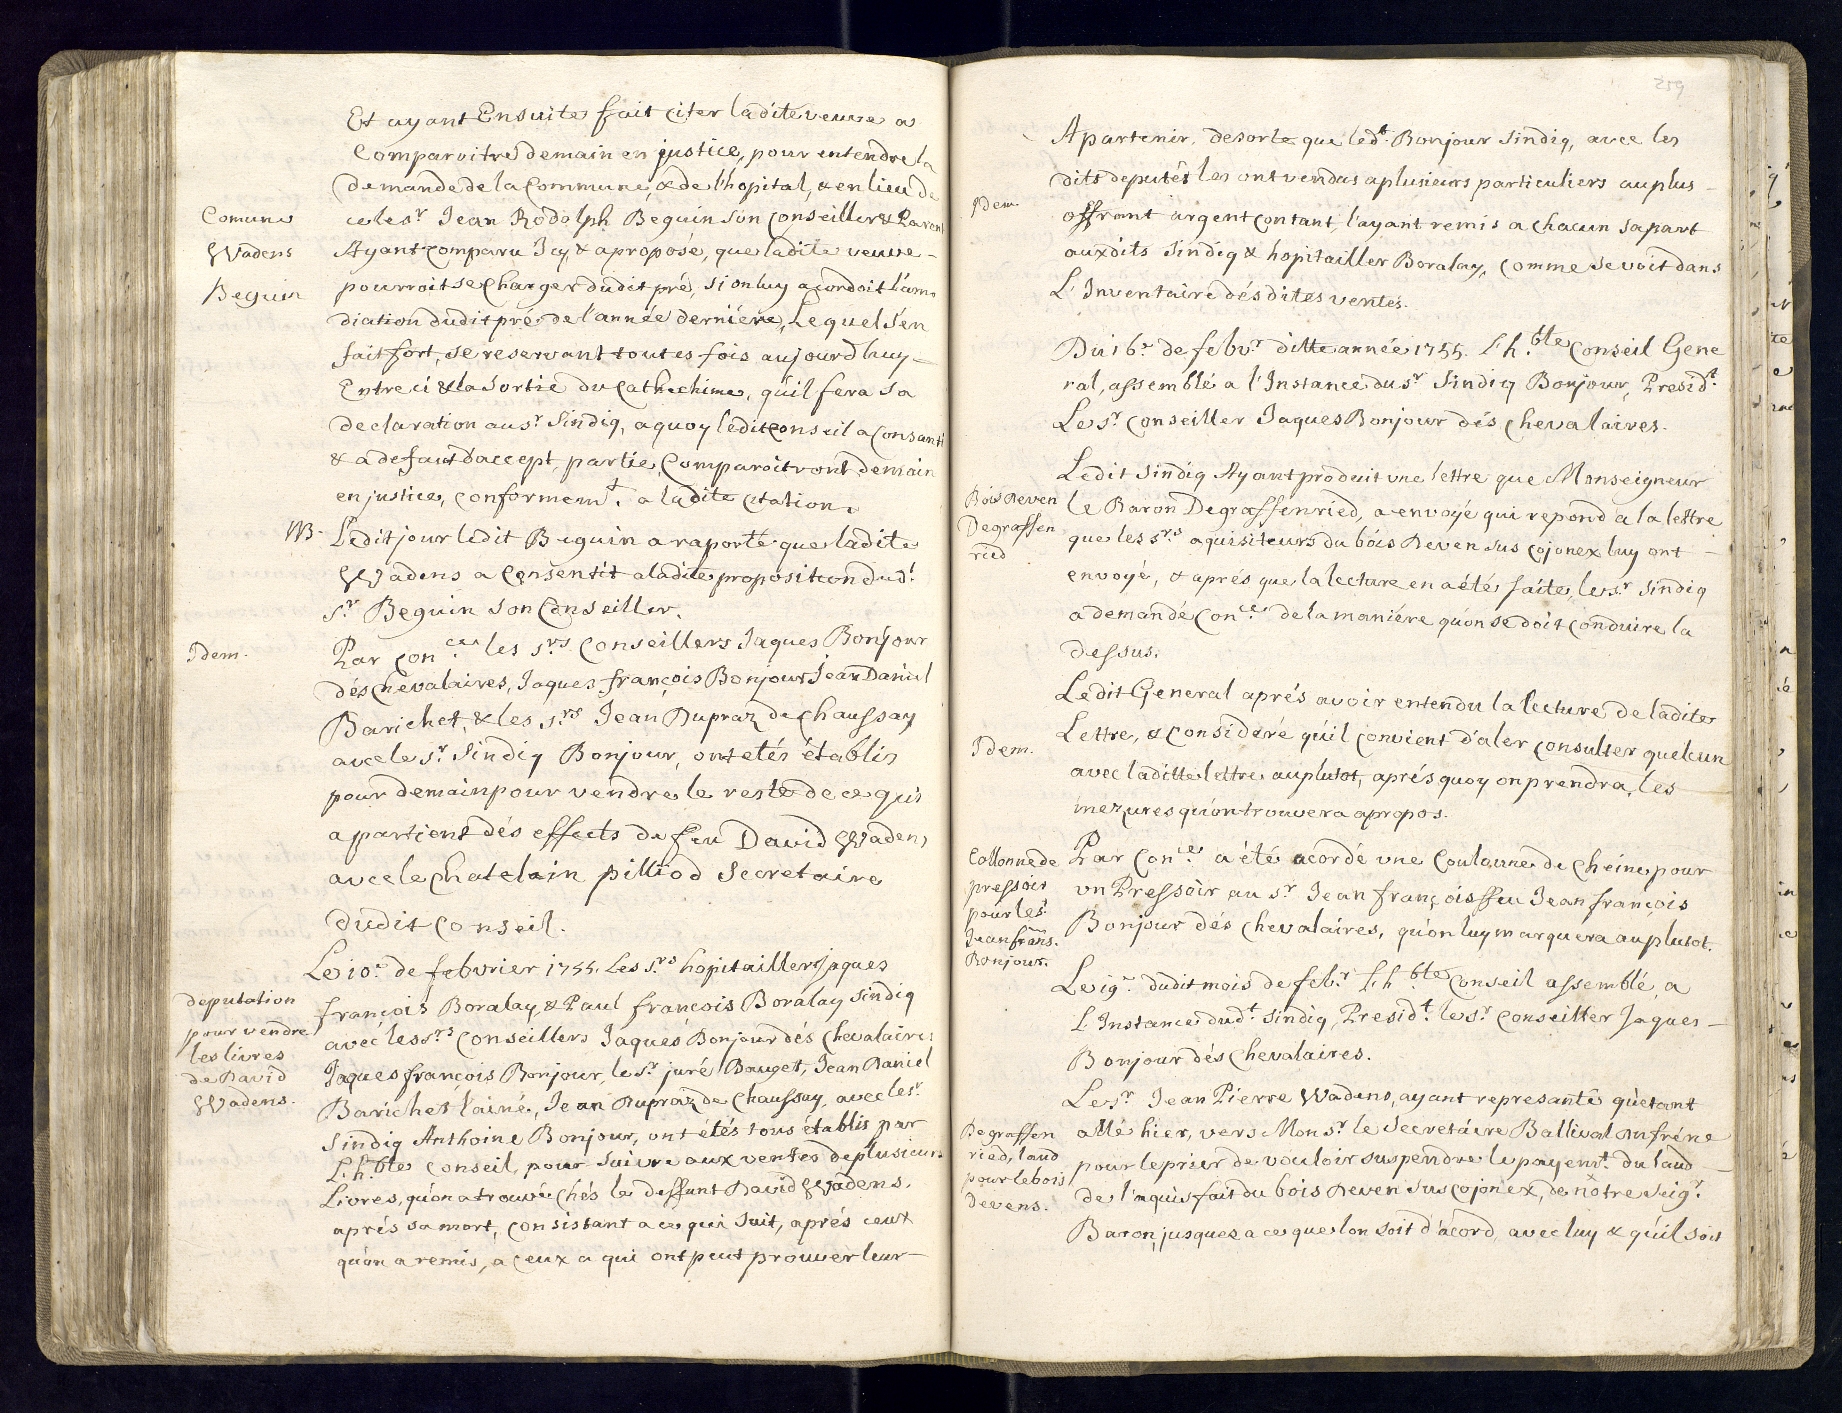 Et ayant Ensuite fait citer ladite veuve a
Comparoitre demain en justice, pour entendre la
demande de la Commune, & de l'hopital, & en lieu de
Comune
Wadens
Beguin
ce le sr. Jean Rodolph Beguin son Conseiller & Parent
Ayant comparu Icy, & a proposé, que ladite veuve
pourroit se Charger dudit pré, si on luy acordoit l'amo
diation dudit pré de l'année derniére, Lequel s'en
fait fort, se reservant toutes fois aujourdhuy
Entre ci & la sortie du Cathechime, qu'il fera sa
declaration au sr. Sindiq, a quoy ledit conseil a Consanti
& a defaut d'accept, partie Comparoitront demain
en justice, conformemt. a ladite citation.
NB. Ledit jour ledit Beguin a raporté que ladite
Wadens a Consentit a ladite proposition dudt.
sr. Beguin son Conseiller.
Idem.
Par Conce. les srs. Conseillers Jaques Bonjour
dés Chevalaires, Jaques françois Bonjour Jean Daniel
Barichet, & les srs. Jean Dupraz de Chaussay
avec le sr. Sindiq Bonjour, ont etés établis
pour demain pour vendre le reste de ce qui
apartient dés effects de feu David Wadens
avec le Chatelain pilliod Secretaire
dudit Conseil.
Le 10e. de febvrier 1755. Les srs. hopitaillers Jaques
deputation
pour vendre
les livres
de David
Wadens.
françois Boralay, & Paul françois Boralay Sindiq
avec les srs. Conseillers Jaques Bonjour dés Chevalaires
Jaques françois Bonjour, le sr. juré Bouget, Jean Daniel
Barichet l'ainé, Jean Dupraz de Chaussay, avec le sr.
Sindiq Anthoine Bonjour, ont étés tous établis par
L'h.ble Conseil, pour suivre aux ventes de plusieurs
Livres, qu'on a trouvé Chés le deffunt David Wadens,
aprés sa mort, Consistant a ce qui suit, aprés ceux
qu'on a remis, a Ceux a qui ont peut prouver leur
259
Apartenir, desorte que ledt. Bonjour Sindiq, avec les
dits deputés les ont vendus a plusieurs particuliers au plus
Idem.
offrant argent contant, l'ayant remis a chacun sa part
auxdits Sindiq & hopitailler Boralay, comme se voit dans
L'Inventaire désdites ventes.
Du 16e. de febvr. ditte année 1755. L'h.ble Conseil Gene
ral, assemblé a l'Instance du sr. Sindiq Bonjour, Presidt.
Le sr. Conseiller Jaques Bonjour dés Chevalaires.
Ledit Sindiq Ayant produit une lettre que Monseigneur
Bois Deven
Degraffen
ried
le Baron Degraffenried, a envoyé qui repond a la lettre
que les srs. aquisiteurs du bois Deven sus Cojonex luy ont
envoyé, & aprés que la lecture en a été faite, le sr. Sindiq
a demandé Conce. de la maniére qu'on se doit Conduire la
dessus.
Ledit General aprés avoir entendu la lecture de ladite
Idem.
Lettre, & consideré qu'il convient d'aler consulter quelcun
avec laditte lettre au plutot, aprés quoy on prendra, les
mezures qu'on trouvera apropos.
Collonne de
pressoir
pour le sr.
Jean frans.
Bonjour.
Par Conce. a été acordé une Coulaune de Cheine pour
un Pressoir au sr. Jean françois ffeu Jean françois
Bonjour dés Chevalaires, qu'on luy marquera au plutot.
Le 19e. dudit mois de febr. L'h.ble Conseil assemblé, a
L'Instance dudt. Sindiq, Presidt. le sr. Conseiller Jaques
Bonjour dés Chevalaires.
Le sr. Jean Pierre Wadens, ayant represanté qu'etant
Degraffen
ried, laud
pour le bois
devens.
allé hier, vers Monsr. le Secretaire Ballival Dufréne
pour le prier de vouloir suspendre le payemt. du laud
de l'aquis fait du bois Deven sus Cojonex, de nôtre Seigr.
Baron, jusques a ce que lon soit d'acord, avec luy & qu'il soit